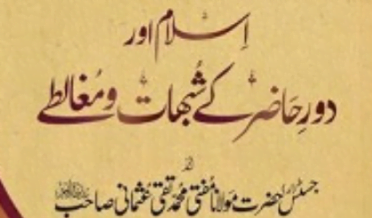 اِسلام اور
دورِ حَاضِر کے شُبہات و مُغالطے
از
جسٹس (ر) حضرت مَولانا مُفتی محمّد تقی عُثمانی صاحب